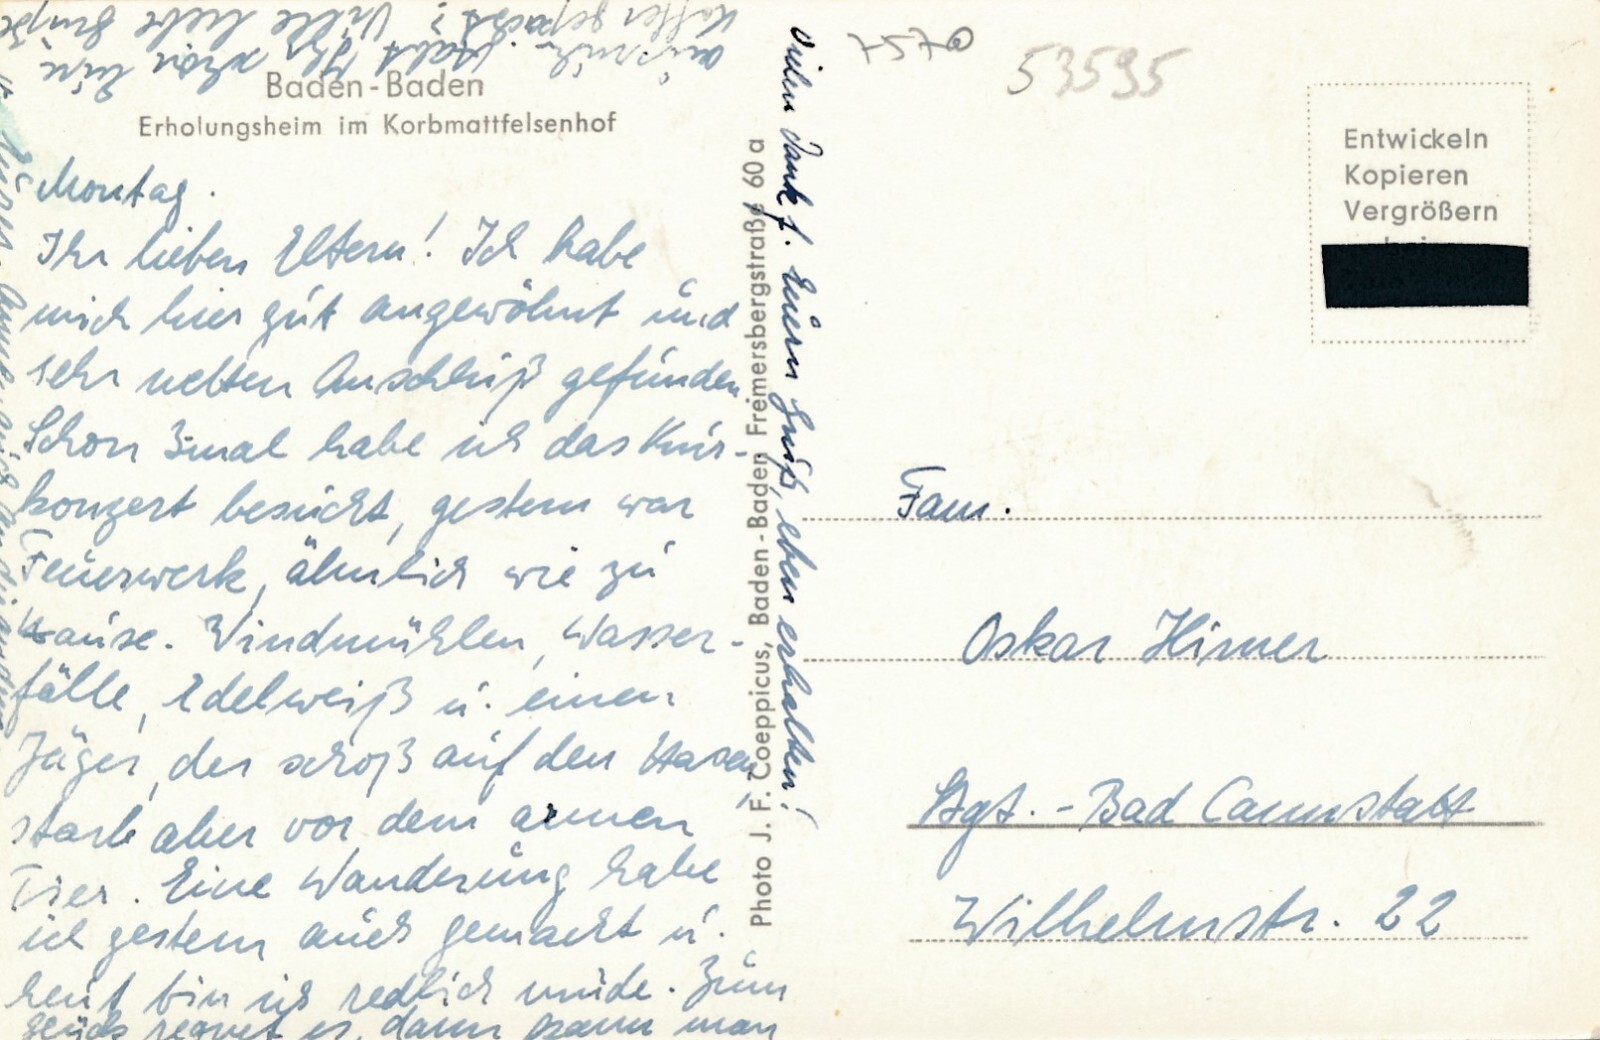 Baden-Baden
Erholungsheim im Korbmattfelsenhof
Montag.
Ihr lieben Eltern! Ich habe
mich hier gut angewöhnt und
sehr netten Anschluß gefunden
Schon 3mal habe ich das Kur-
konzert besucht, gestern war
Feuerwerk, ähnlich wie zu
Hause. Windmühlen, Wasser-
fälle, Edelweiß u. einen
Jäger, der schoß auf den Hasen,
starb aber vor dem armen
Tier. Eine Wanderung habe
ich gestern auch gemacht u.
heut bin ich redlich müde. Zum
Glück regnet es, dann kann man
ausruhn. Habt Ihr schon Eure
Koffer gepackt? Viele liebe Grüße
Vielen Dank f. Euern Gruß, eben erhalten!
Photo J. F. Coeppicus, Baden-Baden Fremersbergstraße 60a
7570
53595
Entwickeln
Kopieren
Vergrößern
bei
Fam.
Oskar Hirner
Stgt.-Bad Cannstatt
Wilhelmstr. 22